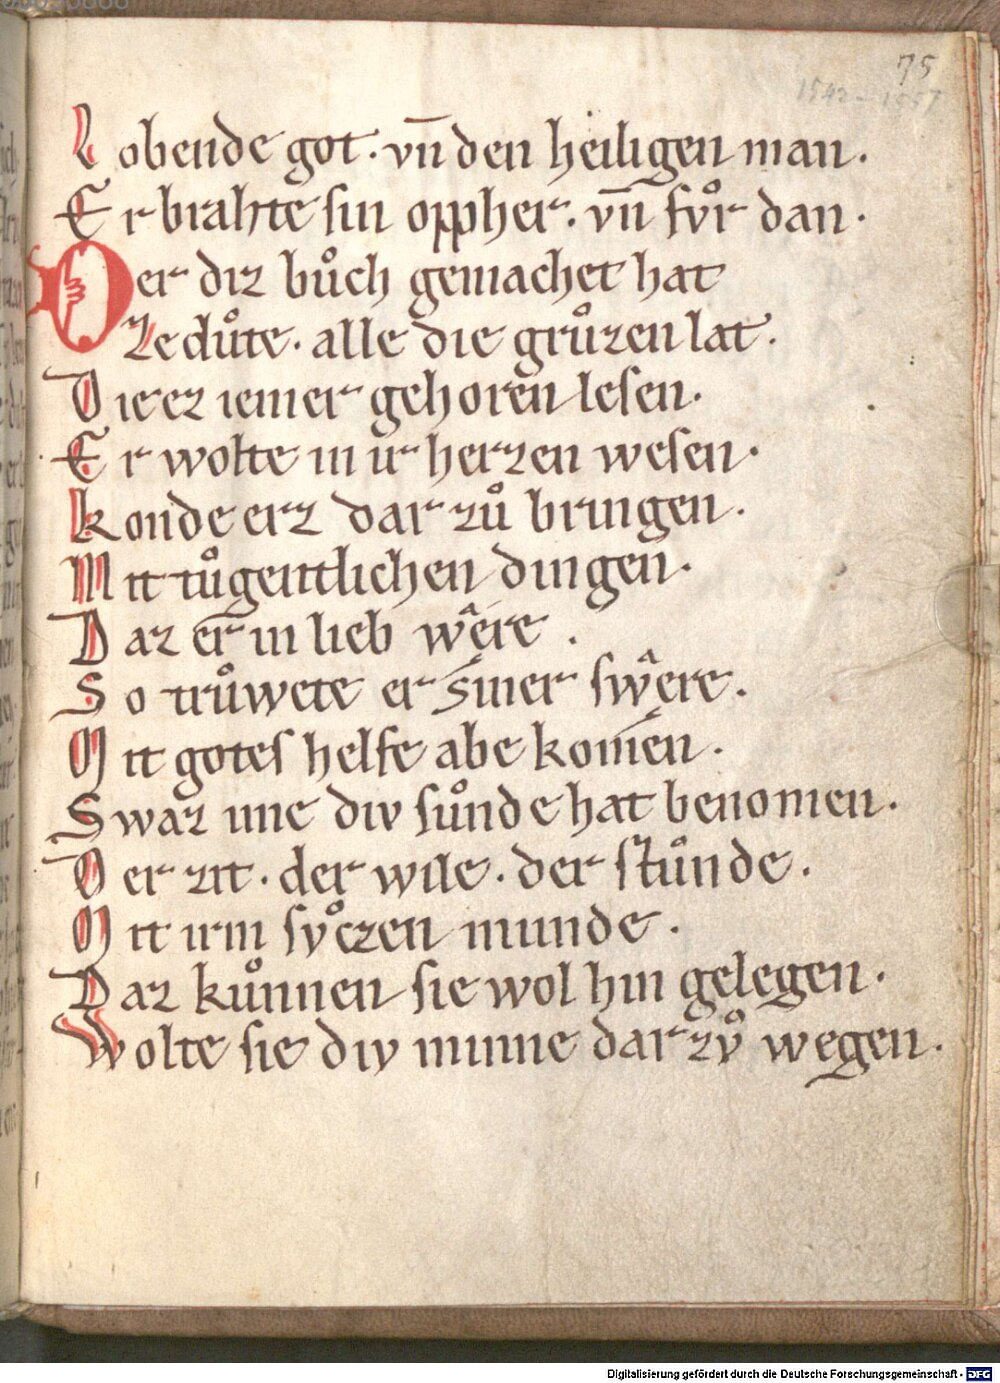 75
1542 – 1557
Lobende got. vn̄ den heiligen man.
Er brahte sin oppher. vn̄ fvͦr dan.
Der diz buͦch gemachet hat
ze duͦte. alle die gruͦzen lat.
Die ez iemer gehoren lesen.
Er wolte in ir herzen wesen.
konde erz dar zuͦ bringen.
Mit tuͦgentlichen dingen.
Daz er in lieb wêre.
So truͦwete er siner swêre.
Mit gotes helfe abe komen.
Swaz ime div suͦnde hat benomen.
Der zit. der wile. der stuͦnde.
Mit irm svͦczen munde.
Daz kuͦnnen sie wol hin gelegen.
Wolte sie div minne dar zvͦ wegen.
Digitalisierung gefördert durch die Deutsche Forschungsgemeinschaft - DFG